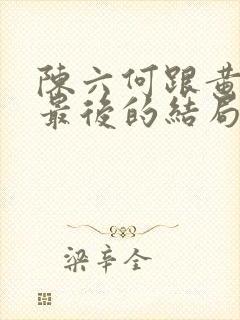 陳六何跟黃
最後的結局
梁辛全